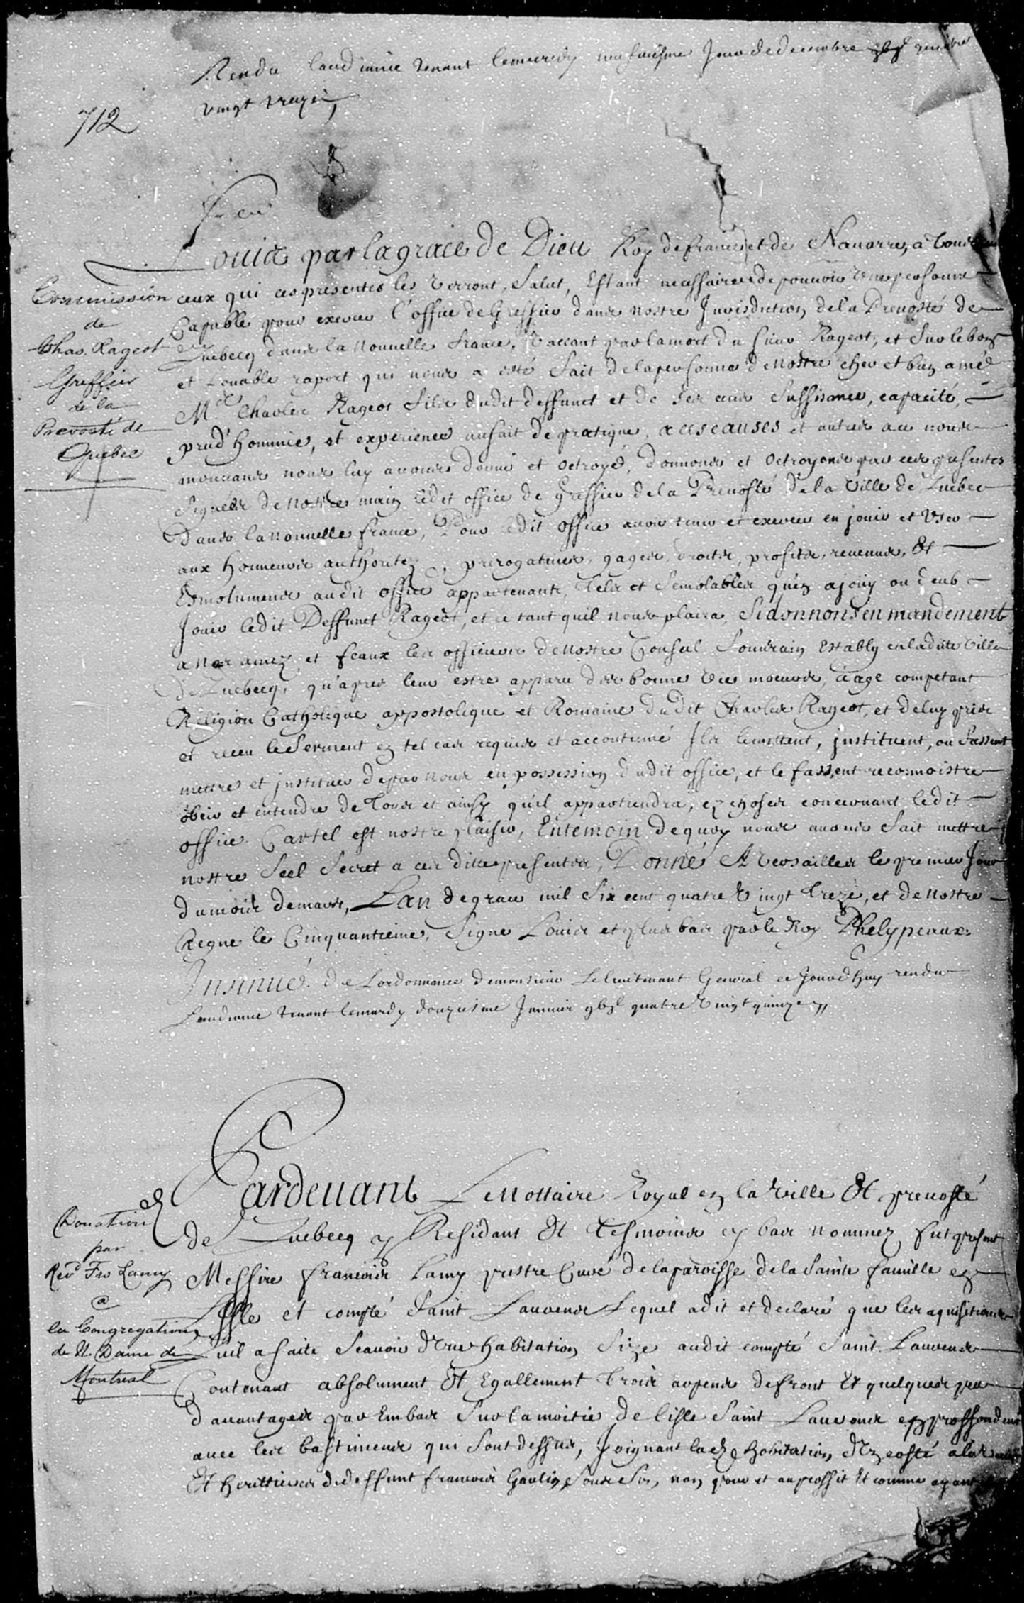 Rendu laudiance tenant le mercredy Jour de decembre
vingt treize
712
Louis par la grace de Dieu Roy de france et de Navarre, a tous
Commission
de
Chas. Rageot
Greffier
de la
Prevosté de
Quebec
ceux qui ces presentes les verront, Salut, Estant neccessaire de pourvoir une personne
Capable pour exercer l'office de Greffier dans nostre Jurisdiction de la Prevosté de
Quebecq dans la nouvelle france, vaccant par la mort du sieur Rageot, et sur le bon
et Louable raport qui nous a esté fait de la personne de nostre cher et bien amé
Mre Charles Rageot filz dudit deffunct et de ses sens suffisance, capacité,
prud'hommie, et experience au fait de pratique, a ces causes et autres a ce nous
mouvans nous luy avons donné et octroyé, donnons et octroyons par ces presentes
signées de nostre main ledit office de Greffier de la Prevosté de la ville de Quebec
dans la nouvelle france, Pour ledit office avoir tenir et exercer en jouir et user
aux honneurs authoritez, prerogatives, gages, droits, profits, revenus, Et
Esmolumens audit office appartenants, tels et semblables qu'en a jouy ou deub
Jouir ledit Deffunct Rageot, et ce tant quil nous plaira Si donnons en mandement
a nos amez et feaux les officiers de nostre Conseil Souverain Estably en ladite ville
de Quebecq, qu'apres leur estre apparu des bonne vie moeurs, aage competant
Religion Catholique appostolique et Romaine dudit Charles Rageot, et de luy pris
et receu le serment en tel cas requis et accoutumé Ils le mettent, instituent, ou fassent
mettre et instituer de par nous en possession dudit office, et le fassent reconnoistre
obeir et entendre de tous et ainsy qu'il appartiendra, es choses concernant ledit
office Car tel est nostre plaisir, En temoin de quoy nous avons fait mettre
nostre Seel Secret a ces dites presentes, Donné A Versailles le premier jour
du mois de mars, L'an de grace mil six cent quatre vingt treze, et de nostre
Regne le Cinquantieme, Signe Louis et plus bas par le Roy Phelypeaux
Insinué de Lordonnance de monsieur Le lieutenant General ce jourdhuy rendue
Laudiance tenant le mardy douziesme Janvier quatre vingt quinze
Donation
par
Revd Frs Lamy
a
la Congregation
de N. Dame de
Montreal
Pardevant Le Nottaire Royal en la ville Et prevosté
de Quebecq y Residant Et tesmoins cy bas nommez fut present
Messire francois Lamy prestre Curé de la paroisse de la Sainte famille en
Lisle et comté Saint Laurens Lequel a dit et declaré que les aquisitions
quil a faite scavoir d'une habitation size audit compté Saint Laurens
Contenant absolument Et Egallement trois arpens de front Et quelques peu
davantages par Embas sur la moitié de lisle Saint Laurens
avec les bastimens qui sont dessus, joignant lad habitation, d'un costé
Et herittiers de deffunt francois Gaulin, non pour et au proffit Et comme ayant